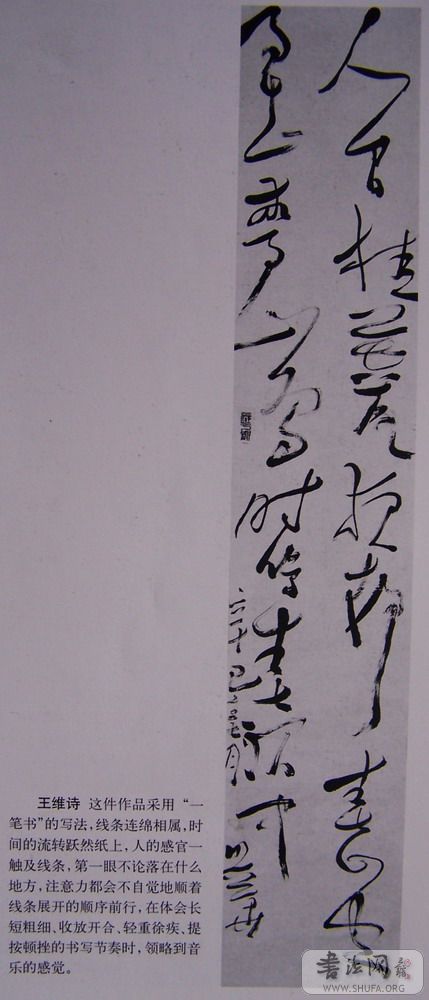 人闲桂花落夜静春山空
月出惊山鸟时鸣春涧中
王维诗 这件作品采用“一
笔书”的写法，线条连绵相属，时
间的流转跃然纸上，人的感官一
触及线条，第一眼不论落在什么
地方，注意力都会不自觉地顺着
线条展开的顺序前行，在体会长
短粗细、收放开合、轻重徐疾、提
按顿挫的书写节奏时，领略到音
乐的感觉。
书法网
WWW.SHUFA.ORG